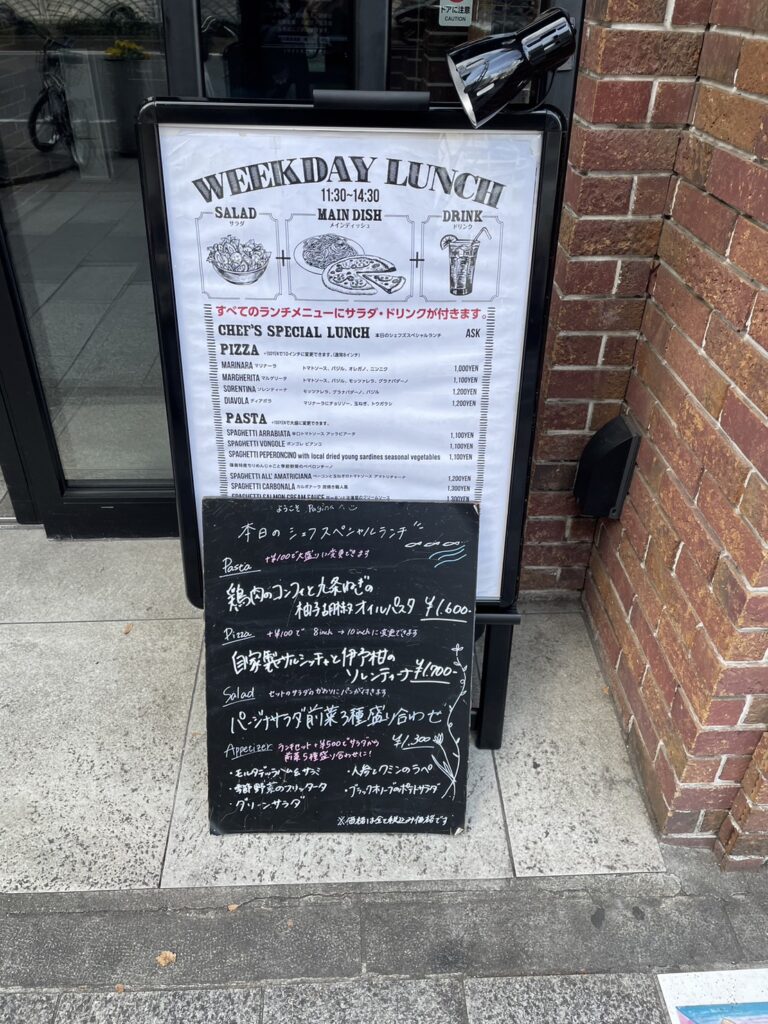 ドアに注意
CAUTION
WEEKDAY LUNCH
11:30~14:30
SALAD
サラダ
+
MAIN DISH
メインディッシュ
+
DRINK
ドリンク
すべてのランチメニューにサラダ・ドリンクが付きます。
CHEF'S SPECIAL LUNCH 本日のシェフズスペシャルランチ ASK
PIZZA +100YENで10インチに変更できます。(通常8インチ)
MARINARA マリナーラ トマトソース、バジル、オレガノ、ニンニク 1,000YEN
MARGHERITA マルゲリータ トマトソース、バジル、モッツァレラ、グラナパダーノ 1,100YEN
SORENTINA ソレンティーナ モッツァレラ、グラナパダーノ、バジル 1,200YEN
DIAVOLA ディアボラ マリナーラにチョリソー、玉ねぎ、トウガラシ 1,200YEN
PASTA +100YENで大盛に変更できます。
SPAGHETTI ARRABIATA 辛口トマトソース アラビアータ 1,100YEN
SPAGHETTI VONGOLE ボンゴレ ビアンコ 1,100YEN
SPAGHETTI PEPERONCINO with local dried young sardines seasonal vegetables 1,100YEN
SPAGHETTI ALL' AMATRICIANA ベーコンと玉ねぎのトマトソース アマトリチャーナ 1,200YEN
SPAGHETTI CARBONALA カルボナーラ 1,300YEN
SPAGHETTI SALMON CREAM SAUCE 1,300YEN
ようこそ Pagina へ
本日のシェフスペシャルランチ
Pasta +¥100で大盛りに変更できます
鶏肉のコンフィと九条ねぎの
柚子胡椒オイルパスタ ¥1,600-
Pizza +¥100で 8inch → 10inchに変更できます
自家製サルシッチャと伊予柑の
ソレンティーナ ¥1,700-
Salad セットのサラダのかわりにパンが付きます
パージナサラダ前菜3種盛り合わせ
¥1,300
Appetizer ランチセット+¥500でサラダから
前菜5種盛り合わせに!
・モルタデッラハム&サラミ ・人参とクミンのラペ
・季節野菜のフリッタータ ・ブラックオリーブのポテトサラダ
・グリーンサラダ
※価格は全て税込み価格です